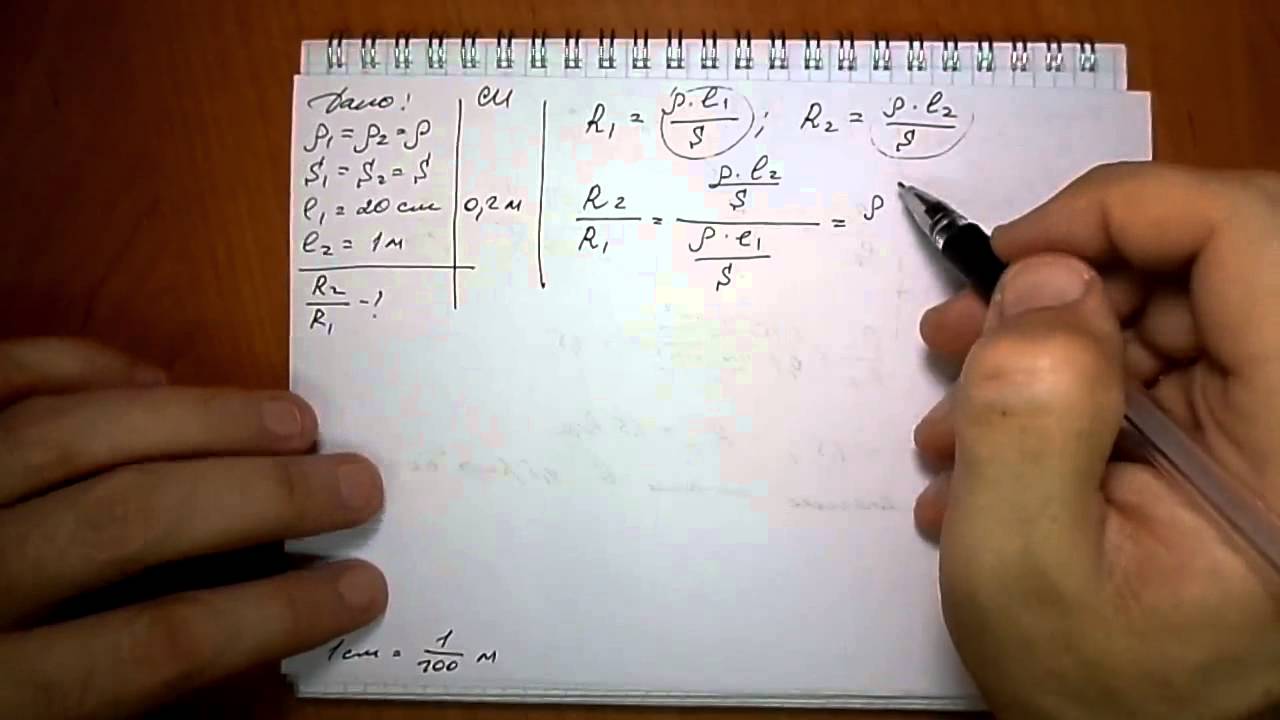 Дано:
ρ₁ = ρ₂ = ρ
S₁ = S₂ = S
ℓ₁ = 20 см
ℓ₂ = 1 м
R₂/R₁ - ?
СИ
0,2 м
R₁ = (ρ · ℓ₁)/S ; R₂ = (ρ · ℓ₂)/S
R₂/R₁ = ((ρ · ℓ₂)/S)/((ρ · ℓ₁)/S) = ρ
1 см = 1/100 м